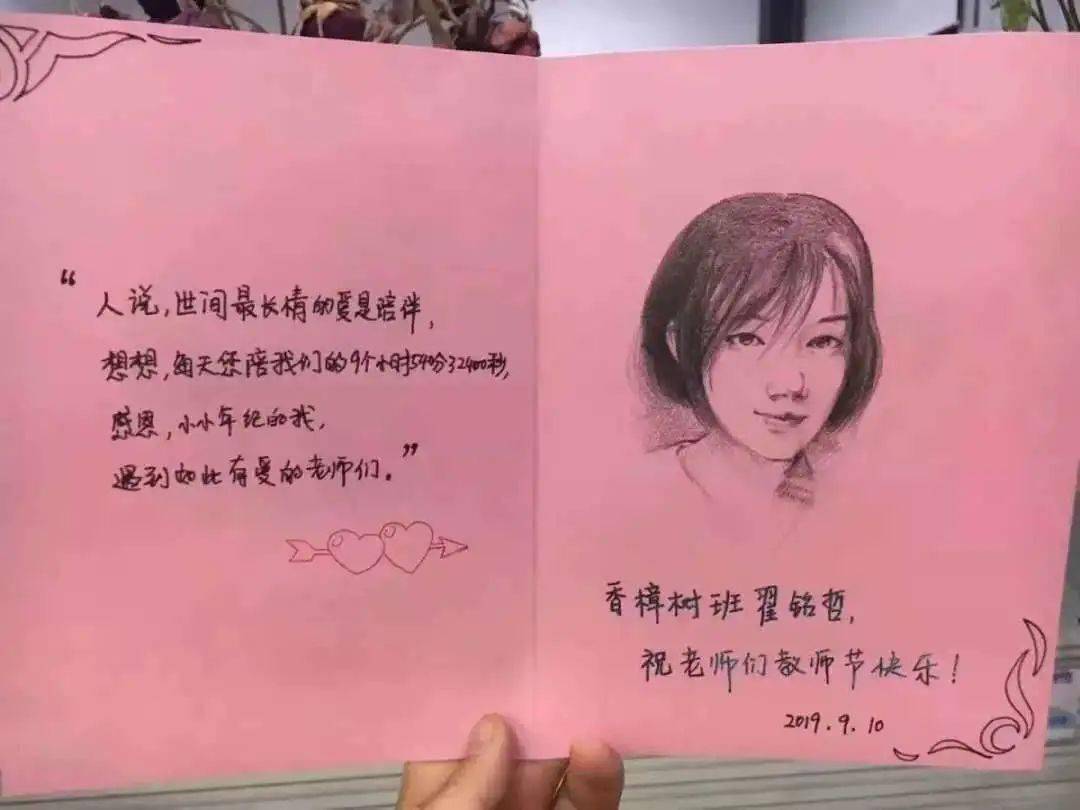 “人说，世间最长情的爱是陪伴，
想想，每天您陪我们的9个小时540分32400秒，
感恩，小小年纪的我，
遇到如此有爱的老师们。”
香樟树班翟铭哲，
祝老师们教师节快乐！
2019.9.10